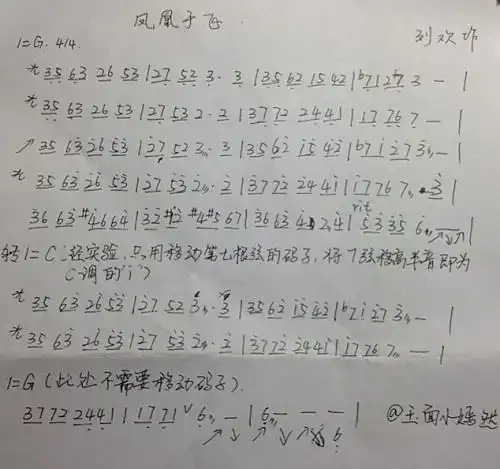 凤凰于飞
刘欢作
1=G. 4/4.
* 35 63 26 53 | 27 52 3 · 3 | 35 62 15 42 | b7 1 27 3 — |
* 35 63 26 53 | 27 53 2 · 2 | 37 72 24 41 | 17 76 7 — |
↗ 35 63 26 53 | 27 52 3 · 3 | 35 62 15 42 | b7 1 27 3 — |
* 35 63 26 53 | 27 53 2 · 2 | 37 72 24 41 | 17 76 7 · 3 |
rit
36 63 #4664 | 32 #12 #4#5 67 | 36 63 4 2 4 | 53 35 6
转1=C(经实验,只用移动第七根弦的码子,将7弦移高半音即为
C调的"i")
* 35 63 26 53 | 27 52 3 · 3 | 35 62 15 42 | b7 1 27 3 — |
* 35 63 26 53 | 27 53 2 · 2 | 37 72 24 41 | 17 76 7 — |
1=G(此处不需要移动码子).
37 72 24 41 | 17 71 ∨ 6 — | 6 — — — |
6
@玉面小嫣然